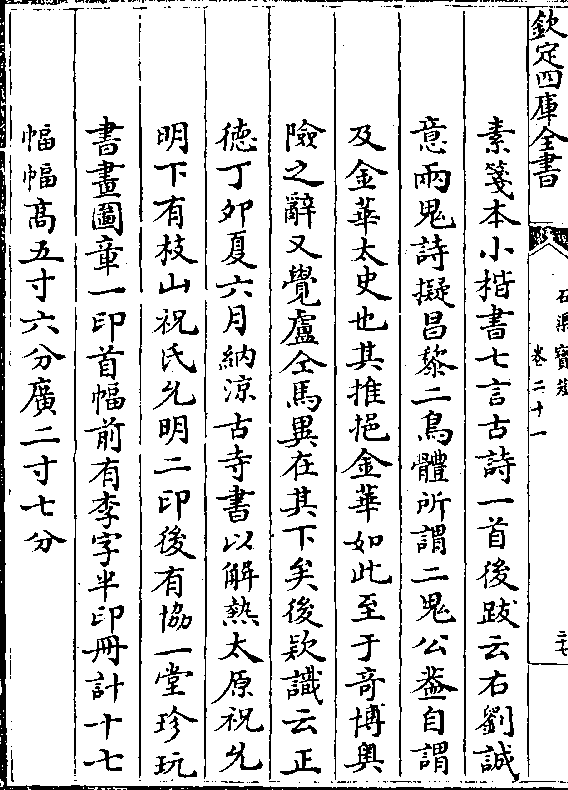 欽定四庫全書
石渠寶笈
卷二十一
二七
素箋本小楷書七言古詩一首後跋云右劉誠
意兩鬼詩擬昌黎二鳥體所謂二鬼公葢自謂
及金華太史也其推挹金華如此至于竒博奥
險之辭又覺盧仝馬異在其下矣後欵識云正
徳丁夘夏六月納涼古寺書以解熱太原祝允
明下有枝山祝氏允明二印後有協一堂珍玩
書畫圖章一印首幅前有李字半印冊計十七
幅幅髙五寸六分廣二寸七分